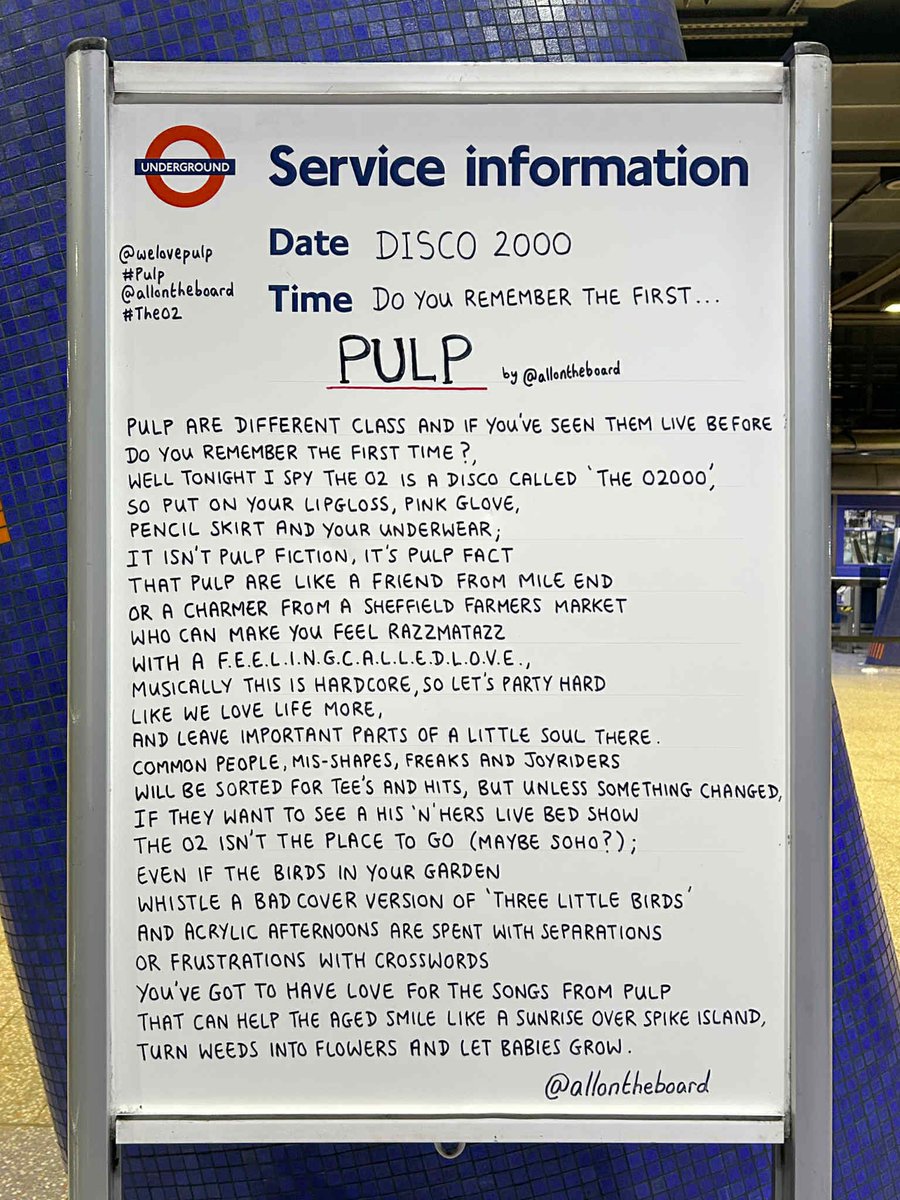 UNDERGROUND
Service information
Date DISCO 2000
Time DO YOU REMEMBER THE FIRST...
@welovepulp
#Pulp
@allontheboard
#TheO2
PULP by @allontheboard
PULP ARE DIFFERENT CLASS AND IF YOU'VE SEEN THEM LIVE BEFORE
DO YOU REMEMBER THE FIRST TIME?,
WELL TONIGHT I SPY THE O2 IS A DISCO CALLED 'THE O2000',
SO PUT ON YOUR LIPGLOSS, PINK GLOVE,
PENCIL SKIRT AND YOUR UNDERWEAR;
IT ISN'T PULP FICTION, IT'S PULP FACT
THAT PULP ARE LIKE A FRIEND FROM MILE END
OR A CHARMER FROM A SHEFFIELD FARMERS MARKET
WHO CAN MAKE YOU FEEL RAZZMATAZZ
WITH A F.E.E.L.I.N.G.C.A.L.L.E.D.L.O.V.E.,
MUSICALLY THIS IS HARDCORE, SO LET'S PARTY HARD
LIKE WE LOVE LIFE MORE,
AND LEAVE IMPORTANT PARTS OF A LITTLE SOUL THERE.
COMMON PEOPLE, MIS-SHAPES, FREAKS AND JOYRIDERS
WILL BE SORTED FOR TEE'S AND HITS, BUT UNLESS SOMETHING CHANGED,
IF THEY WANT TO SEE A HIS 'N' HERS LIVE BED SHOW
THE O2 ISN'T THE PLACE TO GO (MAYBE SOHO?);
EVEN IF THE BIRDS IN YOUR GARDEN
WHISTLE A BAD COVER VERSION OF 'THREE LITTLE BIRDS'
AND ACRYLIC AFTERNOONS ARE SPENT WITH SEPARATIONS
OR FRUSTRATIONS WITH CROSSWORDS
YOU'VE GOT TO HAVE LOVE FOR THE SONGS FROM PULP
THAT CAN HELP THE AGED SMILE LIKE A SUNRISE OVER SPIKE ISLAND,
TURN WEEDS INTO FLOWERS AND LET BABIES GROW.
@allontheboard